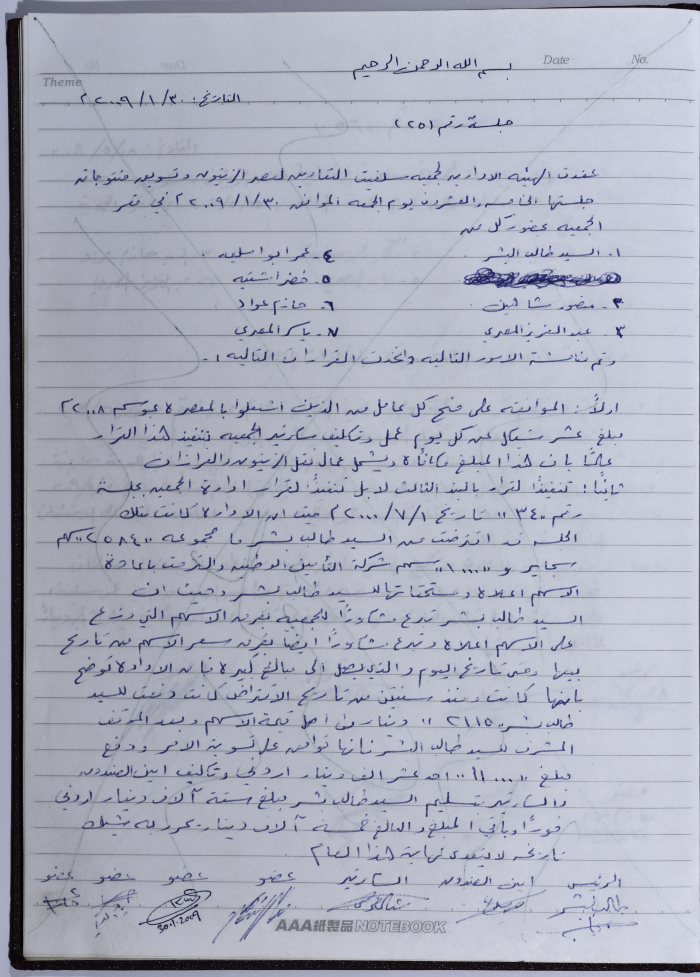 Theme
Date
No.
بسم الله الرحمن الرحيم
التاريخ: ٢٠٠٩/١/٣٠م
جلسة رقم (٢٥)
عقدت الهيئة الادارية لجمعية سلفيت التعاونية لعصر الزيتون وتسويق منتوجاته
جلستها الخامسة والعشرون يوم الجمعة الموافق ٢٠٠٩/١/٣٠م في مقر
الجمعية بحضور كل من
١- السيد طالب البشر
٤- عمر ابو اسليمه
٥- خضر اشتيه
٢- منصور شاهين
٦- حازم عواد
٣- عبد العزيز المصري
٧- ياسر المصري
وتم مناقشة الامور التالية واتخذت القرارات التالية :-
اولاً: الموافقة على منح كل عامل من الذين اشتغلوا بالمعصرة بموسم ٢٠٠٨م
مبلغ عشر شيكل عن كل يوم عمل وتكليف سكرتير الجمعية تنفيذ هذا القرار
علماً بان هذا المبلغ مكافأة ويشمل عمال نقل الزيتون والفرازات
ثانياً: تنفيذاً لقرار بالبند الثالث لا بل تنفيذاً لقرار ادارة الجمعية بجلسة
رقم "٣٤٠" تاريخ ٢٠٠٠/٧/١م حيث ان الادارة كانت بتلك
الجلسة قد اقترضت من السيد طالب بشر ما مجموعه "٢٥٨٤٠" سهم
سجاير و "١٠٠٠" سهم شركة التأمين الوطنية والتزمت باعادة
الاسهم اعلاه ومستحقاتها للسيد طالب بشر وحيث ان
السيد طالب بشر تبرع مشكوراً للجمعية بفرق الاسهم التي وزع
على الاسهم اعلاه وتبرع مشكوراً ايضاً بفرق سعر الاسهم من تاريخ
بيعها وحتى تاريخ اليوم والذي يصل الى مبالغ كبيرة فان الادارة توضح
بانها كانت ومنذ سنتين من تاريخ الاقتراض كانت دفعت للسيد
طالب بشر "٢١١٥" دينار من اصل قيمة الاسهم وبعد الموقف
المشرف للسيد طالب البشر فانها توافق على تسوية الامر ودفع
مبلغ "١١٠٠٠" احد عشر الف دينار اردني وتكليف امين الصندوق
والسكرتير بتسليم السيد طالب بشر مبلغ ستة آلاف دينار اردني
فوراً وباقي المبلغ والبالغ خمسة آلاف دينار يحرر به شيك
تاريخه لا يتعدى نهاية هذا العام
الرئيس امين الصندوق السكرتير عضو عضو عضو عضو
طالب بشر
30.1.2009
AAA紙製品 NOTEBOOK